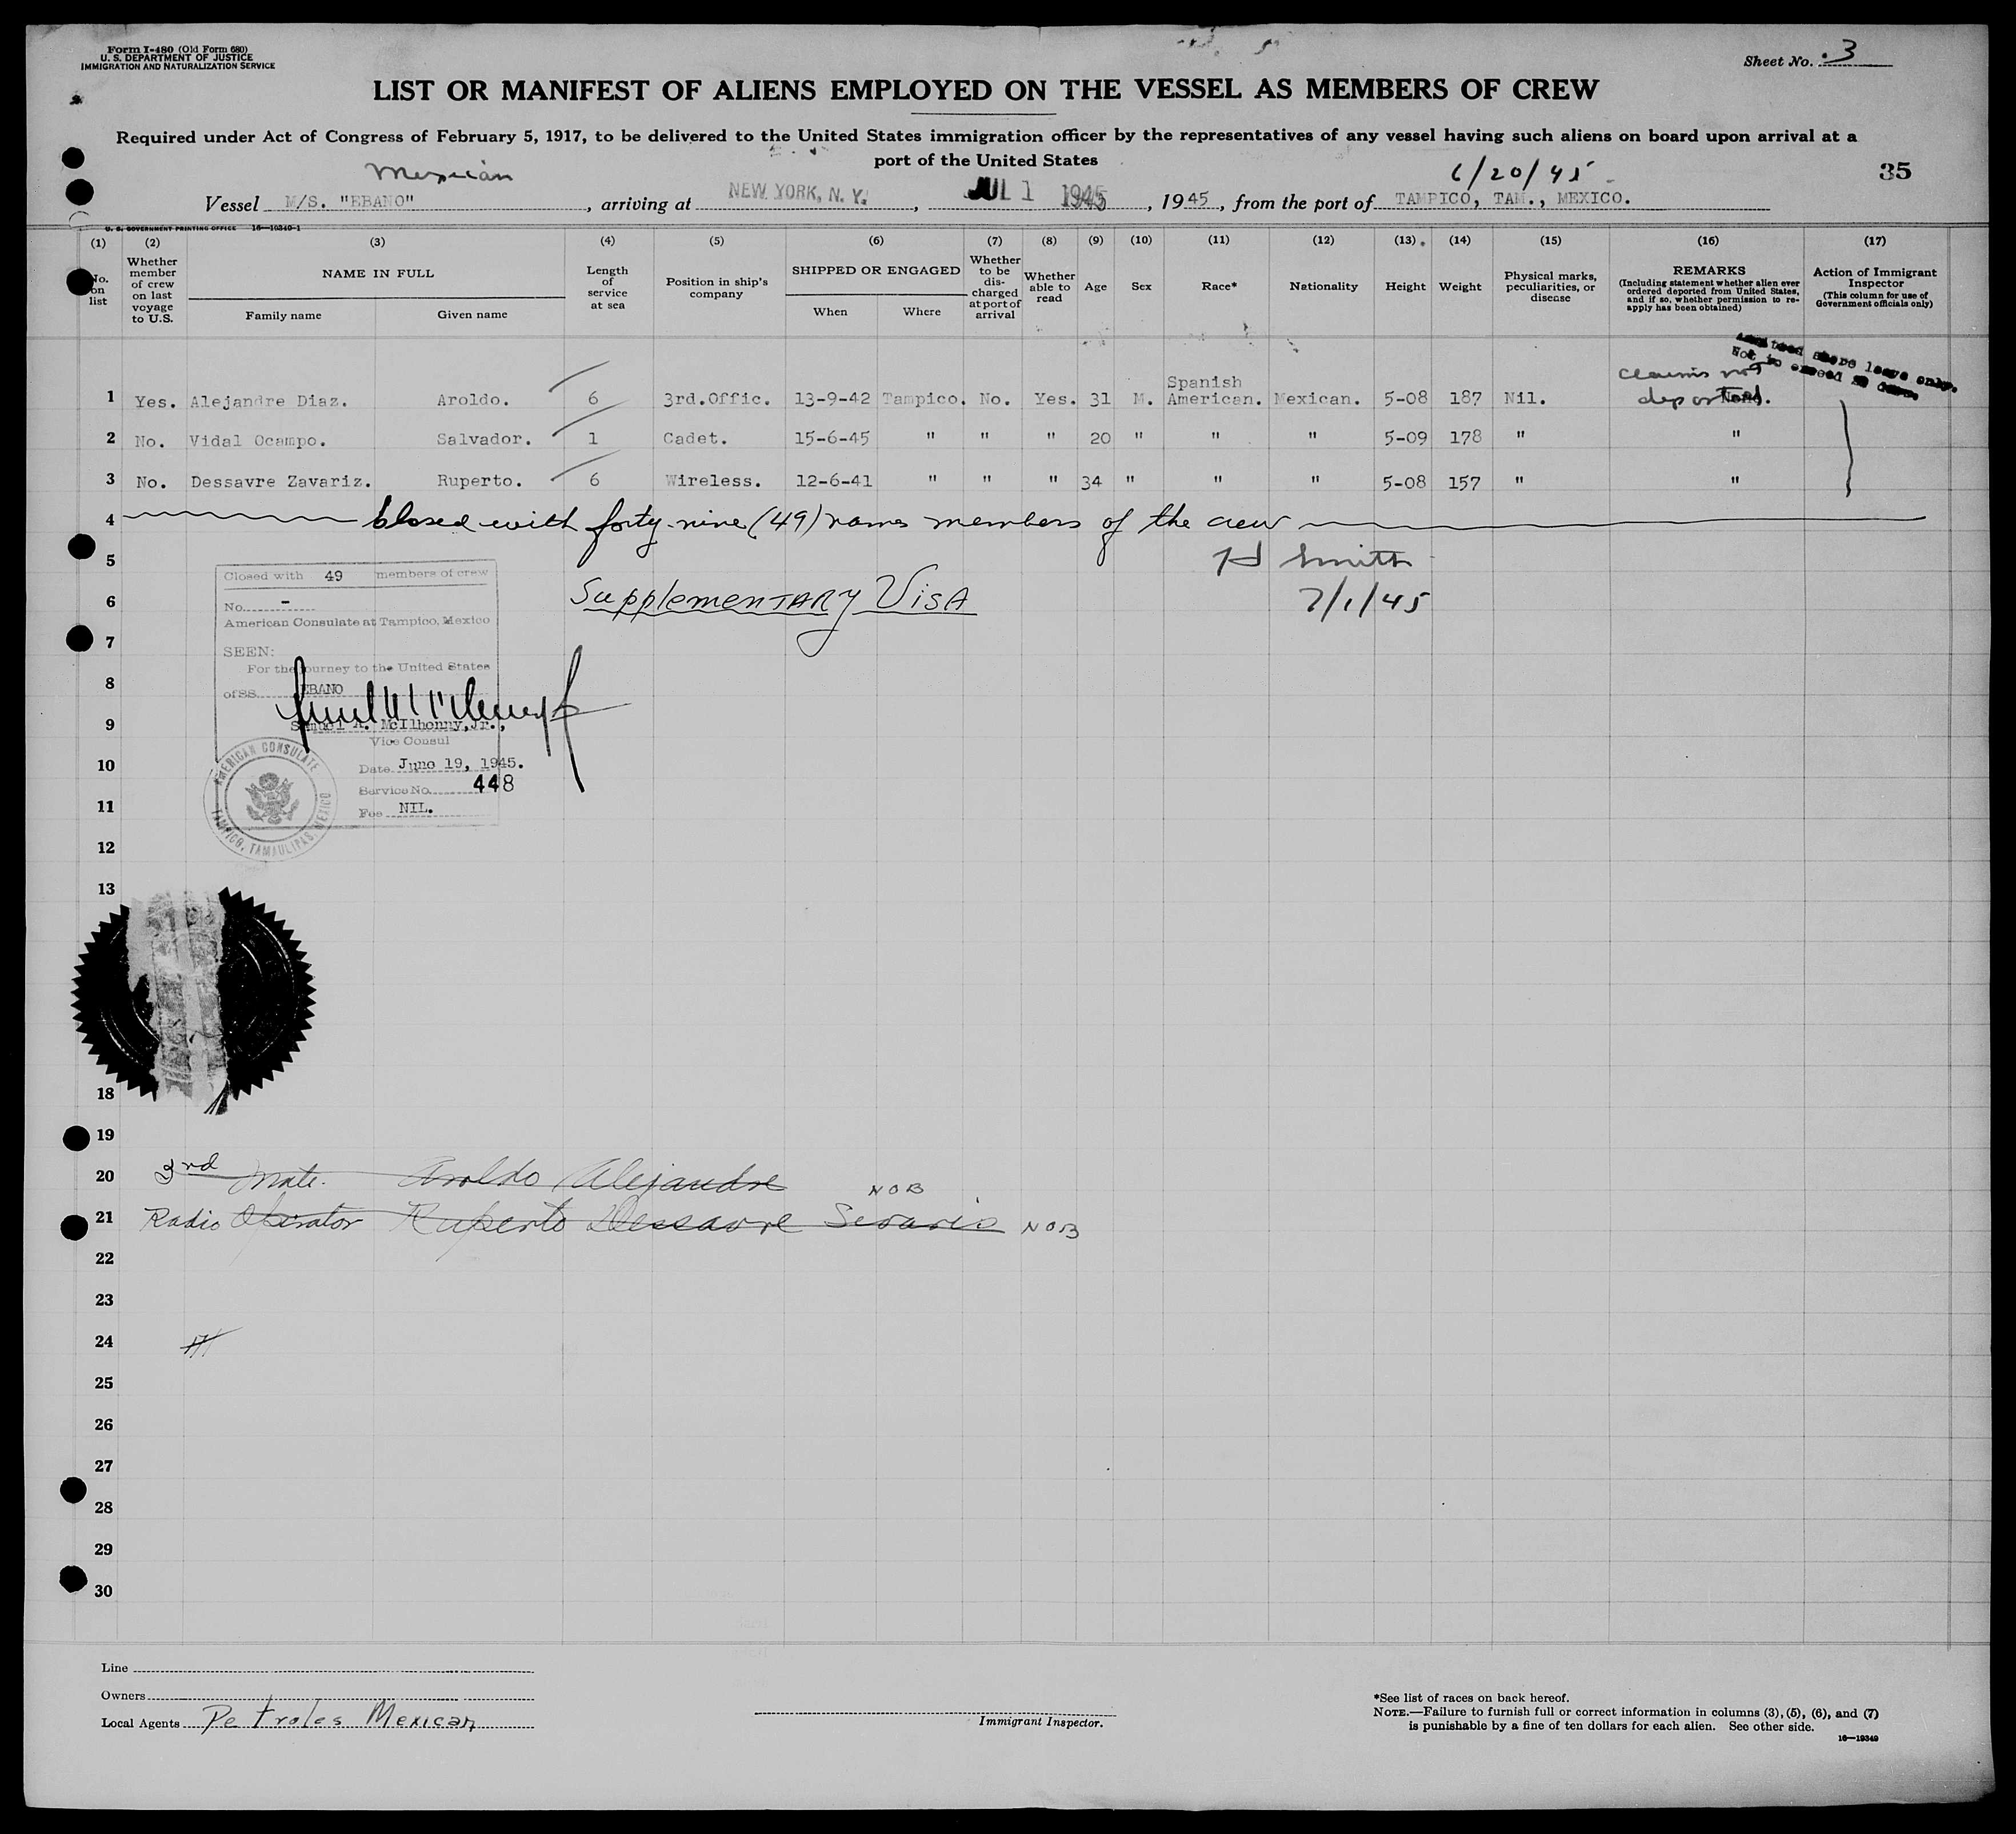 Form I-480 (Old Form 680)
U. S. DEPARTMENT OF JUSTICE
IMMIGRATION AND NATURALIZATION SERVICE
Sheet No. 3
LIST OR MANIFEST OF ALIENS EMPLOYED ON THE VESSEL AS MEMBERS OF CREW
Required under Act of Congress of February 5, 1917, to be delivered to the United States immigration officer by the representatives of any vessel having such aliens on board upon arrival at a
port of the United States
Mexican
6/20/45
35
Vessel M/S. "EBANO", arriving at NEW YORK, N. Y., JUL 1 1945, 1945, from the port of TAMPICO, TAM., MEXICO.
U. S. GOVERNMENT PRINTING OFFICE 16—19349-1
(1) (2) (3) (4) (5) (6) (7) (8) (9) (10) (11) (12) (13) (14) (15) (16) (17)
No. on list
Whether member of crew on last voyage to U.S.
NAME IN FULL
Family name Given name
Length of service at sea
Position in ship's company
SHIPPED OR ENGAGED
When Where
Whether to be discharged at port of arrival
Whether able to read
Age
Sex
Race*
Nationality
Height
Weight
Physical marks, peculiarities, or disease
REMARKS
(Including statement whether alien ever ordered deported from United States, and if so, whether permission to reapply has been obtained)
Action of Immigrant Inspector
(This column for use of Government officials only)
Admitted shore leave only.
Not to exceed 29 days.
claims not
deported
1 Yes. Alejandre Diaz. Aroldo. 6 3rd.Offic. 13-9-42 Tampico. No. Yes. 31 M. Spanish American. Mexican. 5-08 187 Nil. None.
2 No. Vidal Ocampo. Salvador. 1 Cadet. 15-6-45 " " " 20 " " " 5-09 178 " "
3 No. Dessavre Zavariz. Ruperto. 6 Wireless. 12-6-41 " " " 34 " " " 5-08 157 " "
4 closed with forty-nine (49) names members of the crew
5 H Smith
6 Supplementary Visa 7/1/45
Closed with 49 members of crew
No. -
American Consulate at Tampico, Mexico
SEEN:
For the journey to the United States
of SS. EBANO
Samuel A. McIlhenny, Jr.,
Vice Consul
Date June 19, 1945.
Service No. 448
Fee NIL.
AMERICAN CONSULATE
TAMPICO, TAMAULIPAS, MEXICO
7
8
9
10
11
12
13
18
19
20 3rd Mate. Aroldo Alejandre NOB
21 Radio Operator Ruperto Dessavre Sevaris NOB
22
23
24
25
26
27
28
29
30
Line
Owners
Local Agents Petroles Mexican
Immigrant Inspector.
*See list of races on back hereof.
NOTE.—Failure to furnish full or correct information in columns (3), (5), (6), and (7)
is punishable by a fine of ten dollars for each alien. See other side.
16—19349